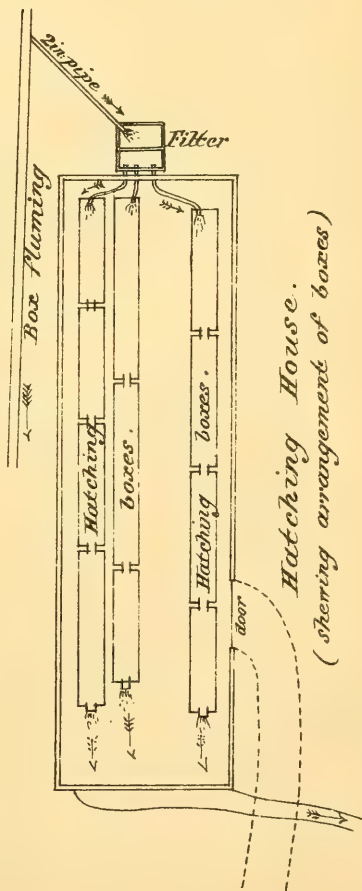 2in. pipe
Filter
Box fluming
Hatching
boxes.
Hatching boxes.
door
Hatching House.
(shewing arrangement of boxes)